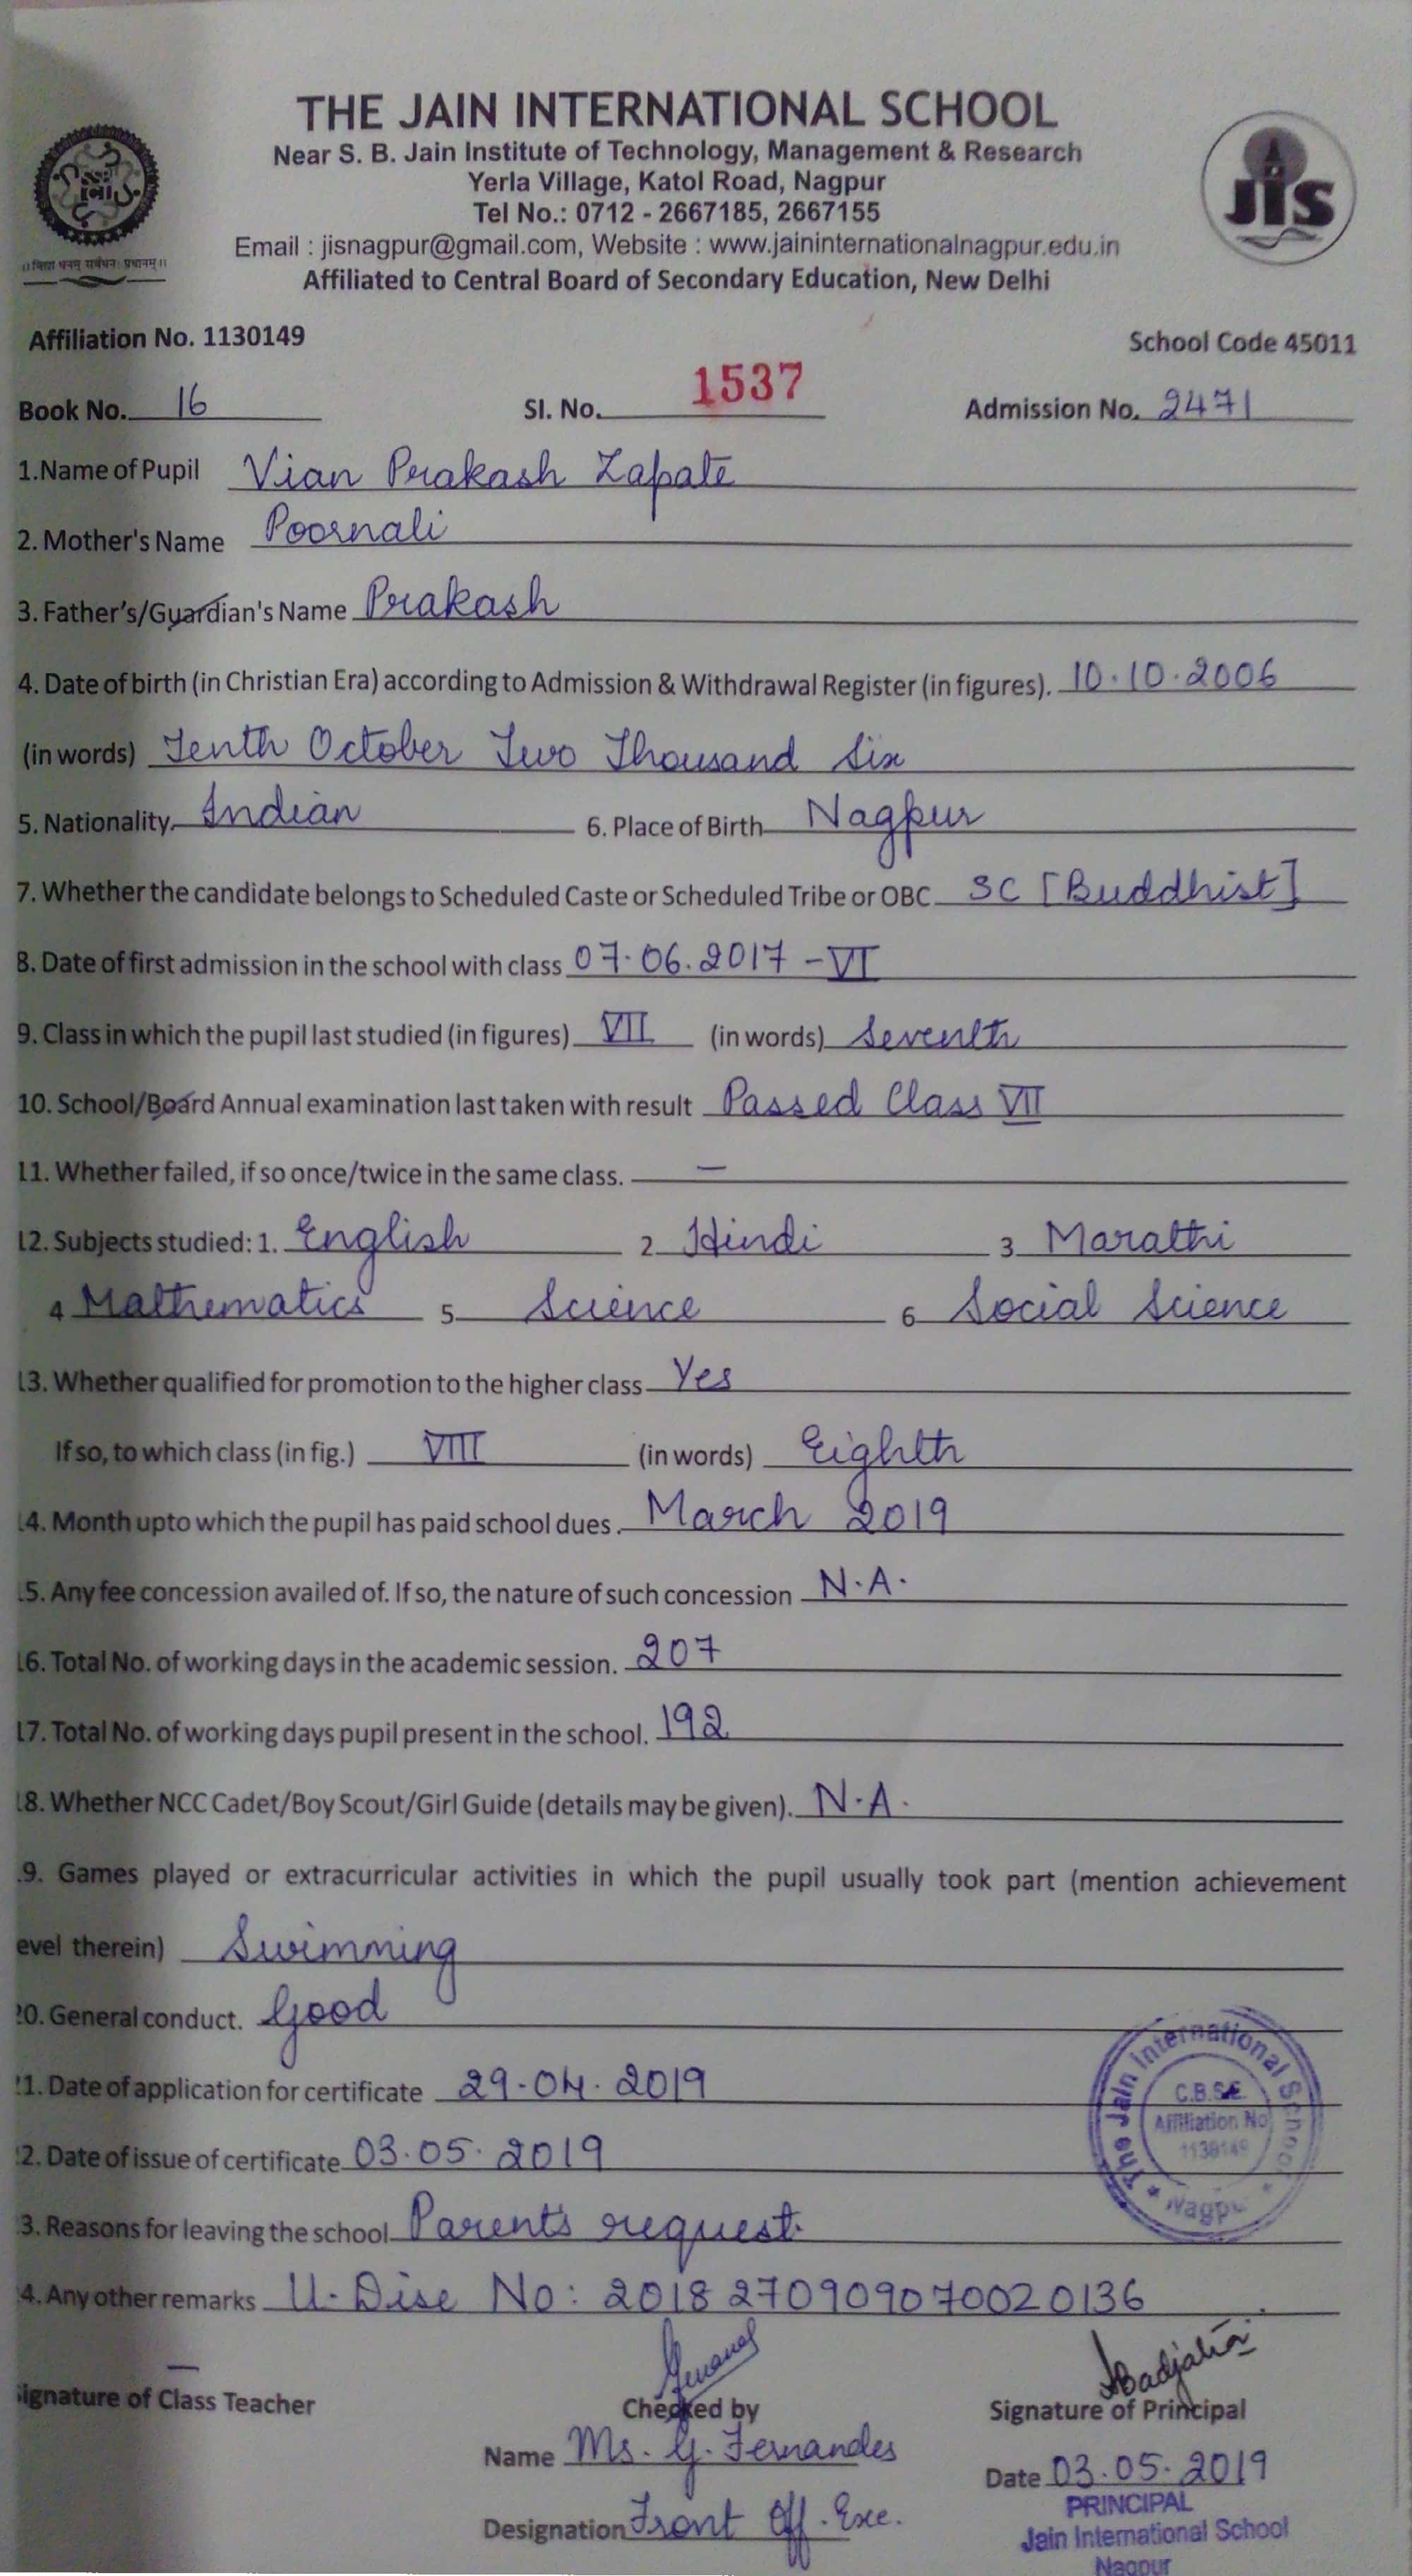 THE JAIN INTERNATIONAL SCHOOL
Near S. B. Jain Institute of Technology, Management & Research
Yerla Village, Katol Road, Nagpur
Tel No.: 0712 - 2667185, 2667155
Email : jisnagpur@gmail.com, Website : www.jaininternationalnagpur.edu.in
Affiliated to Central Board of Secondary Education, New Delhi
JIS
Affiliation No. 1130149 School Code 45011
Book No. 16 Sl. No. 1537 Admission No. 2471
1.Name of Pupil Vian Prakash Zapate
2. Mother's Name Poornali
3. Father's/Guardian's Name Prakash
4. Date of birth (in Christian Era) according to Admission & Withdrawal Register (in figures). 10.10.2006
(in words) Tenth October Two Thousand Six
5. Nationality Indian 6. Place of Birth Nagpur
7. Whether the candidate belongs to Scheduled Caste or Scheduled Tribe or OBC SC [Buddhist]
8. Date of first admission in the school with class 07.06.2017 - VI
9. Class in which the pupil last studied (in figures) VII (in words) Seventh
10. School/Board Annual examination last taken with result Passed Class VII
11. Whether failed, if so once/twice in the same class. —
12. Subjects studied: 1. English 2 Hindi 3 Marathi
4 Mathematics 5 Science 6 Social Science
13. Whether qualified for promotion to the higher class Yes
If so, to which class (in fig.) VIII (in words) Eighth
14. Month upto which the pupil has paid school dues. March 2019
15. Any fee concession availed of. If so, the nature of such concession N.A.
16. Total No. of working days in the academic session. 207
17. Total No. of working days pupil present in the school. 192
18. Whether NCC Cadet/Boy Scout/Girl Guide (details may be given). N.A.
9. Games played or extracurricular activities in which the pupil usually took part (mention achievement
evel therein) Swimming
20. General conduct. Good
1. Date of application for certificate 29.04.2019
2. Date of issue of certificate 03.05.2019
3. Reasons for leaving the school Parent's request.
4. Any other remarks U-Dise No: 2018270909070020136
The Jain International School
C.B.S.E.
Affiliation No
1130149
Signature of Class Teacher Checked by Signature of Principal
Name Ms. G. Fernandes
Date 03.05.2019
Designation Front Off. Exe.
PRINCIPAL
Jain International School
Nagpur